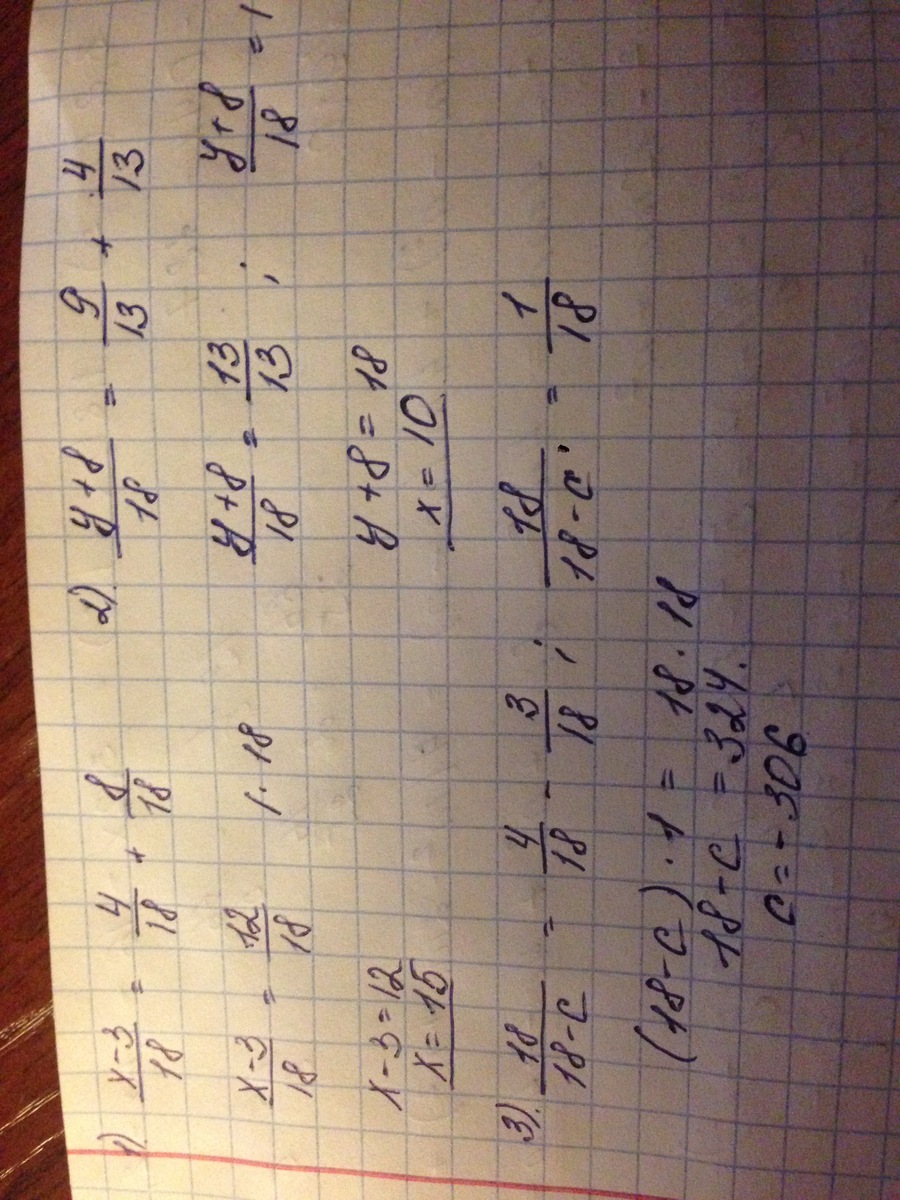 1) (x-3)/18 = 4/18 + 8/18
(x-3)/18 = 12/18 /·18
x-3=12
x=15
2) (y+8)/18 = 9/13 + 4/13
(y+8)/18 = 13/13 ; (y+8)/18 = 1
y+8=18
x=10
3) 18/(18-c) = 4/18 - 3/18 ; 18/(18-c) = 1/18
(18-c)·1 = 18·18
18-c = 324.
c=-306